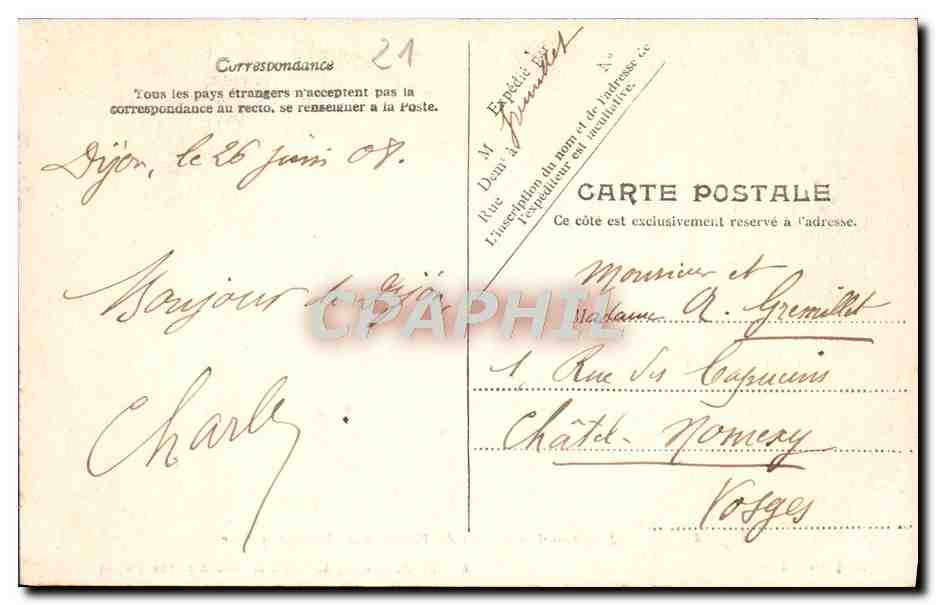 Correspondance
21
Tous les pays étrangers n'acceptent pas la
correspondance au recto, se renseigner à la Poste.
Dijon, le 26 juin 08.
Bonjour de Dijon
Charles
Expédié Par
M Gremillet
Demt à
Rue N°
L'inscription du nom et de l'adresse de
l'expéditeur est facultative.
CARTE POSTALE
Ce côté est exclusivement réservé à l'adresse.
Monsieur et
Madame A. Gremillet
1, Rue des Capucins
Châtel-Nomexy
Vosges
CPAPHIL